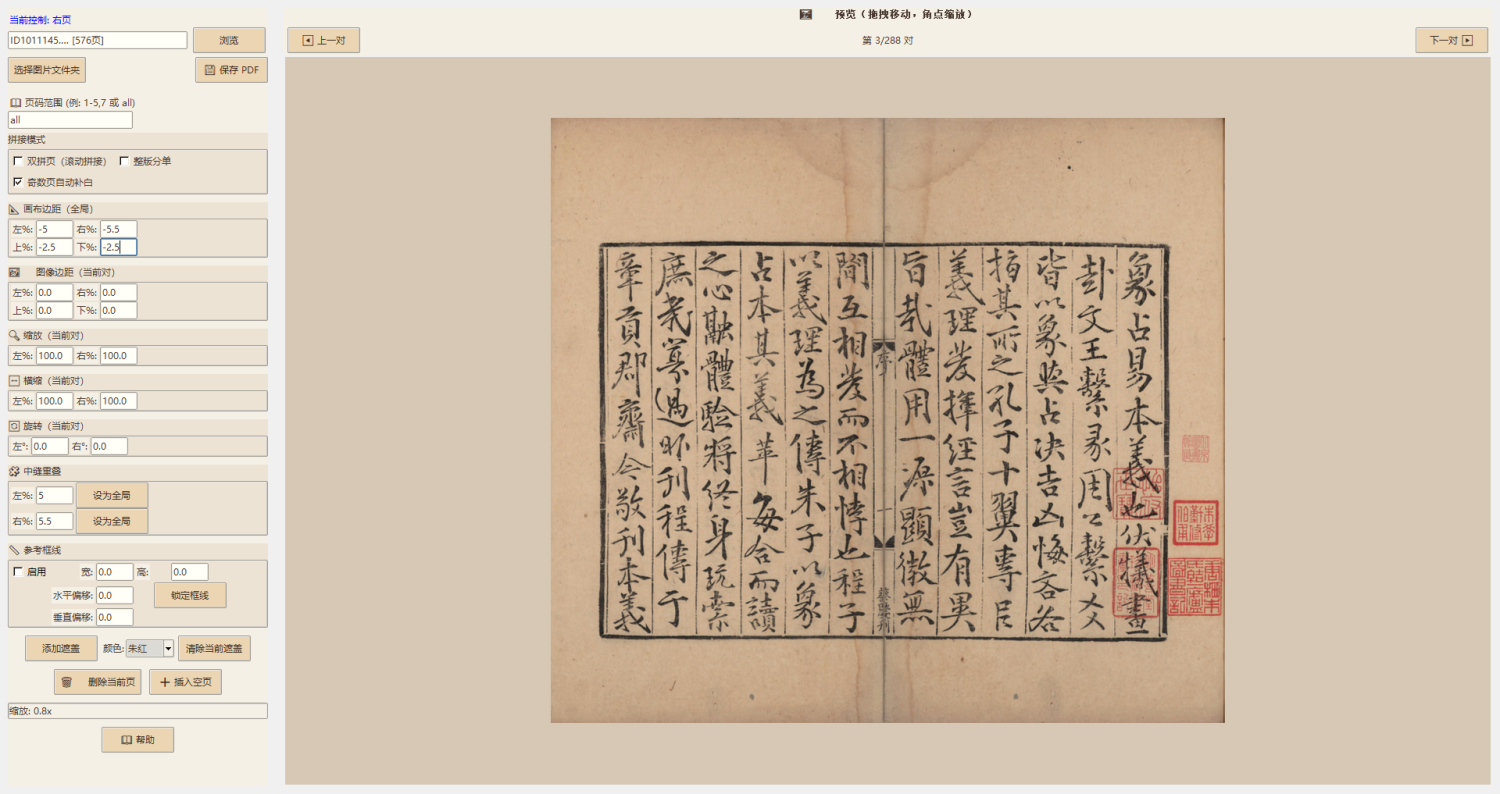 当前控制: 右页
ID1011145.... [576页]
浏览
选择图片文件夹
保存 PDF
页码范围 (例: 1-5,7 或 all)
all
拼接模式
双拼页（滚动拼接） 整版分单
奇数页自动补白
画布边距（全局）
左%: -5 右%: -5.5
上%: -2.5 下%: -2.5
图像边距（当前对）
左%: 0.0 右%: 0.0
上%: 0.0 下%: 0.0
缩放（当前对）
左%: 100.0 右%: 100.0
横缩（当前对）
左%: 100.0 右%: 100.0
旋转（当前对）
左°: 0.0 右°: 0.0
中缝重叠
左%: 5 设为全局
右%: 5.5 设为全局
参考框线
启用 宽: 0.0 高: 0.0
水平偏移: 0.0 锁定框线
垂直偏移: 0.0
添加遮盖 颜色: 朱红 清除当前遮盖
删除当前页 插入空页
缩放: 0.8x
帮助
预览（拖拽移动，角点缩放）
上一对
第 3/288 对
下一对
象占易本義也伏儀畫
卦文王繫彖周公繫爻
皆以象與占决吉凶悔吝各
指其所之孔子十翼專㠯
義理發揮經言豈有異
旨哉體用一源顯微無
序
一
間互相發而不相悖也程子
以義理為之傳朱子以象
占本其義革每合而讀
之心融體驗將終身玩索
庶幾寡過昨刊程傳于
章貢郡齋今敬刊本義